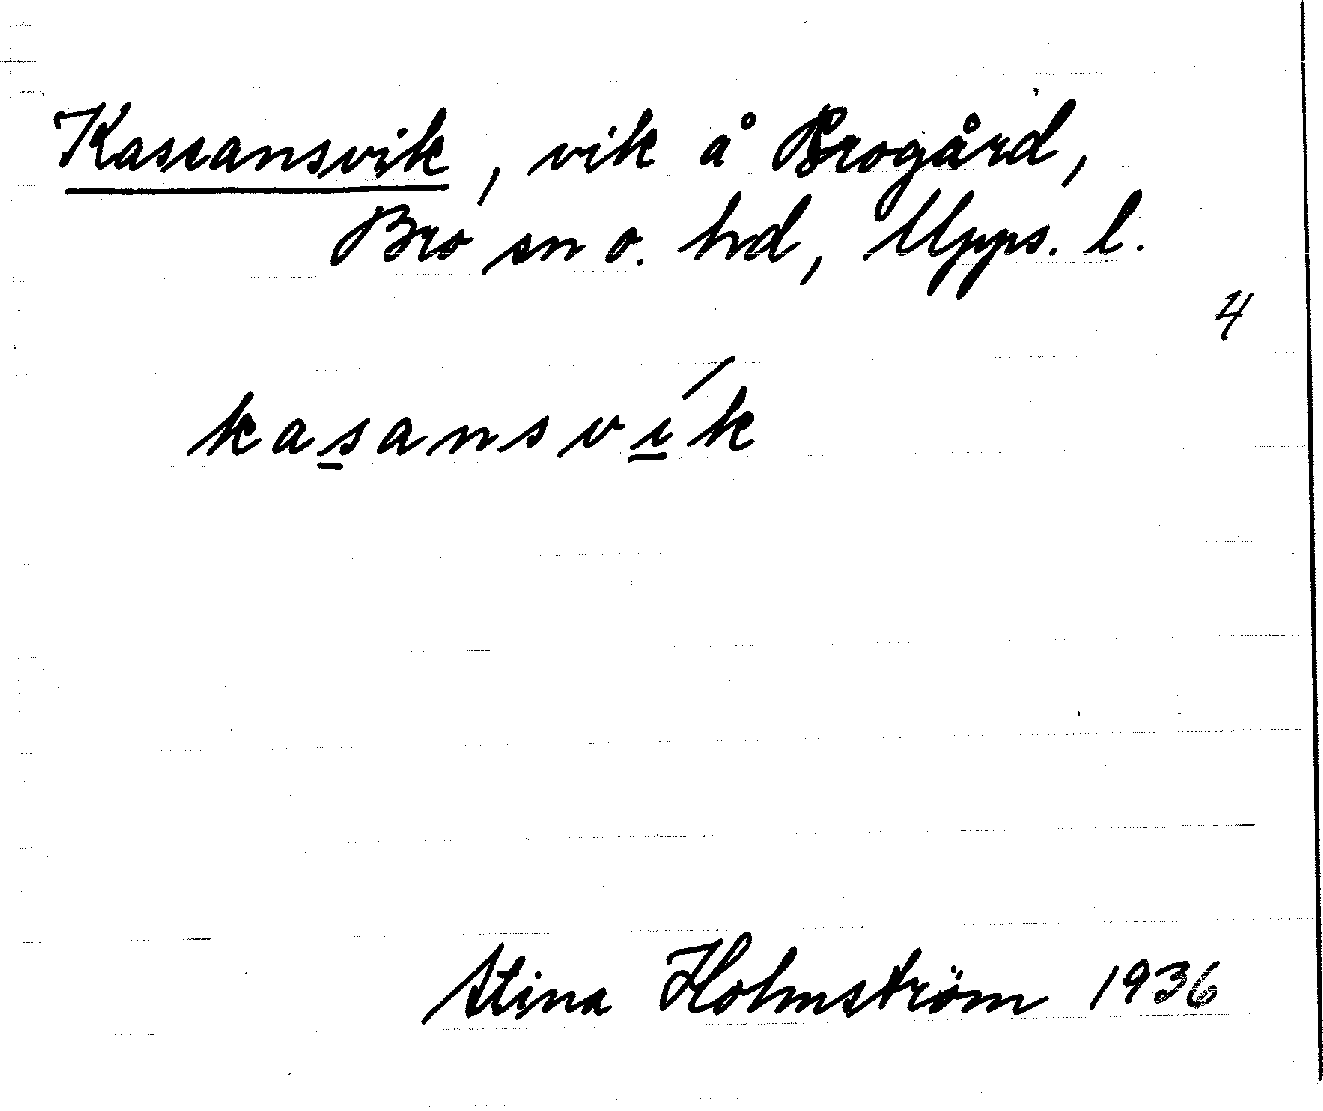 Kassansvik, vik å Brogård,
Bro sn o. hd, Upps. l.
4
kasansvík
Stina Holmström 1936